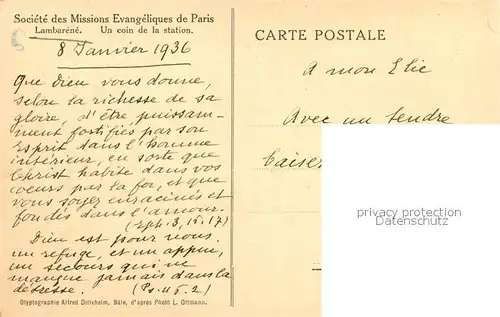 Société des Missions Evangéliques de Paris
Lambaréné. Un coin de la station.
8 Janvier 1936
Que Dieu vous donne,
selon la richesse de sa
gloire, d'être puissam-
ment fortifiés par son
Esprit dans l'homme
intérieur, en sorte que
Christ habite dans vos
coeurs par la foi, et que
vous soyez enracinés et
fondés dans l'amour.
(Eph. 3, 16.17)
Dieu est pour nous
un refuge, et un appui,
un secours qui ne
manque jamais dans la
détresse. (Ps. 46.2)
Glyptographie Alfred Ditisheim, Bâle, d'après Photo L. Ottmann.
CARTE POSTALE
A mon Elie
Avec un tendre
baiser
privacy protection
watermark